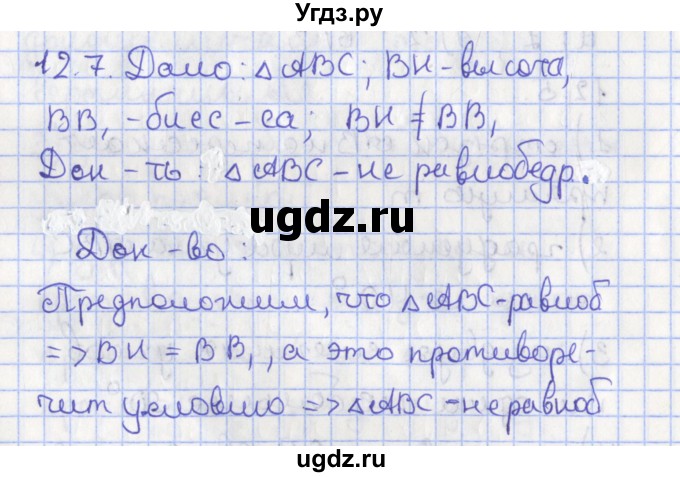 Угдз.ру
12.7. Дано: △ABC; BH - высота,
BB₁ - бисс - са; BH ≠ BB₁
Док - ть: △ABC - не равнобедр.
ugdz.ru
Док - во:
Предположим, что △ABC - равноб
=> BH = BB₁, а это противоре-
чит условию => △ABC - не равноб
ugdz.ru